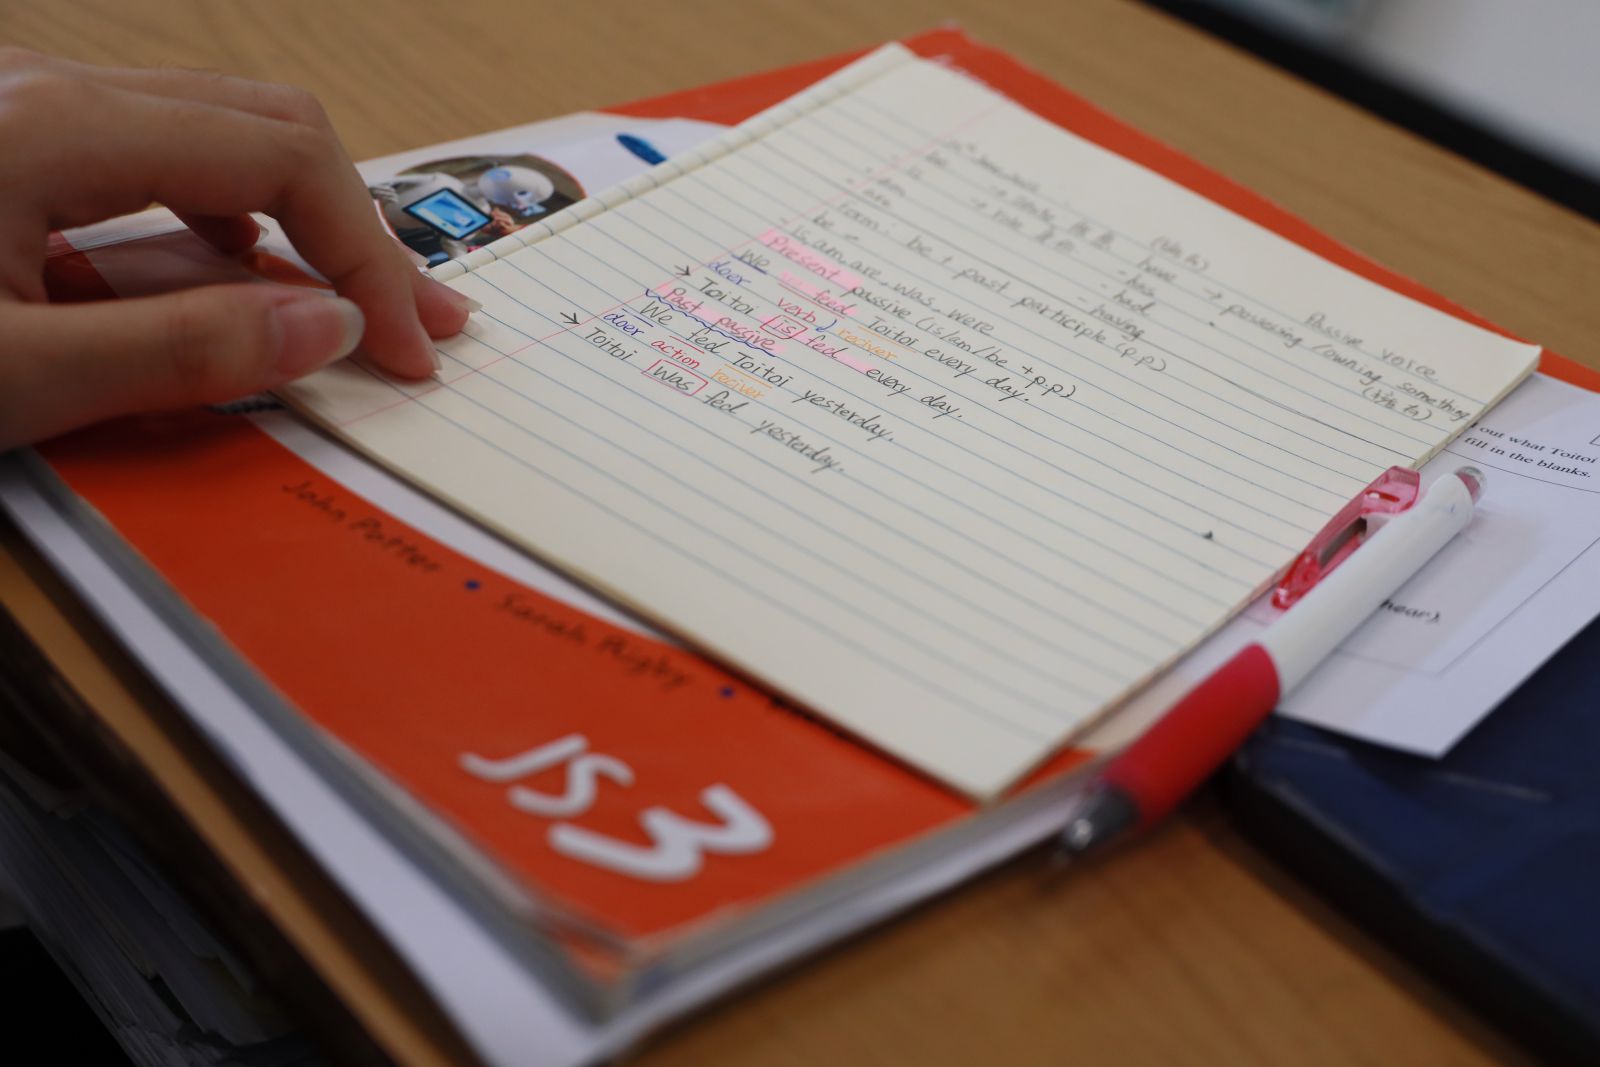 Passive voice
be
is
- am
- are
- have → possessing / owning something
- has
- had
- having
form : be + past participle (p.p)
be =
is, am, are, was, were
Present passive (is/am/be + p.p)
We feed Toitoi every day.
doer verb reciver
→ Toitoi is fed every day.
Past passive
We fed Toitoi yesterday.
doer action reciver
→ Toitoi was fed yesterday.
out what Toitoi
fill in the blanks.
hear).
John Potter • Sarah Rigby •
JS3